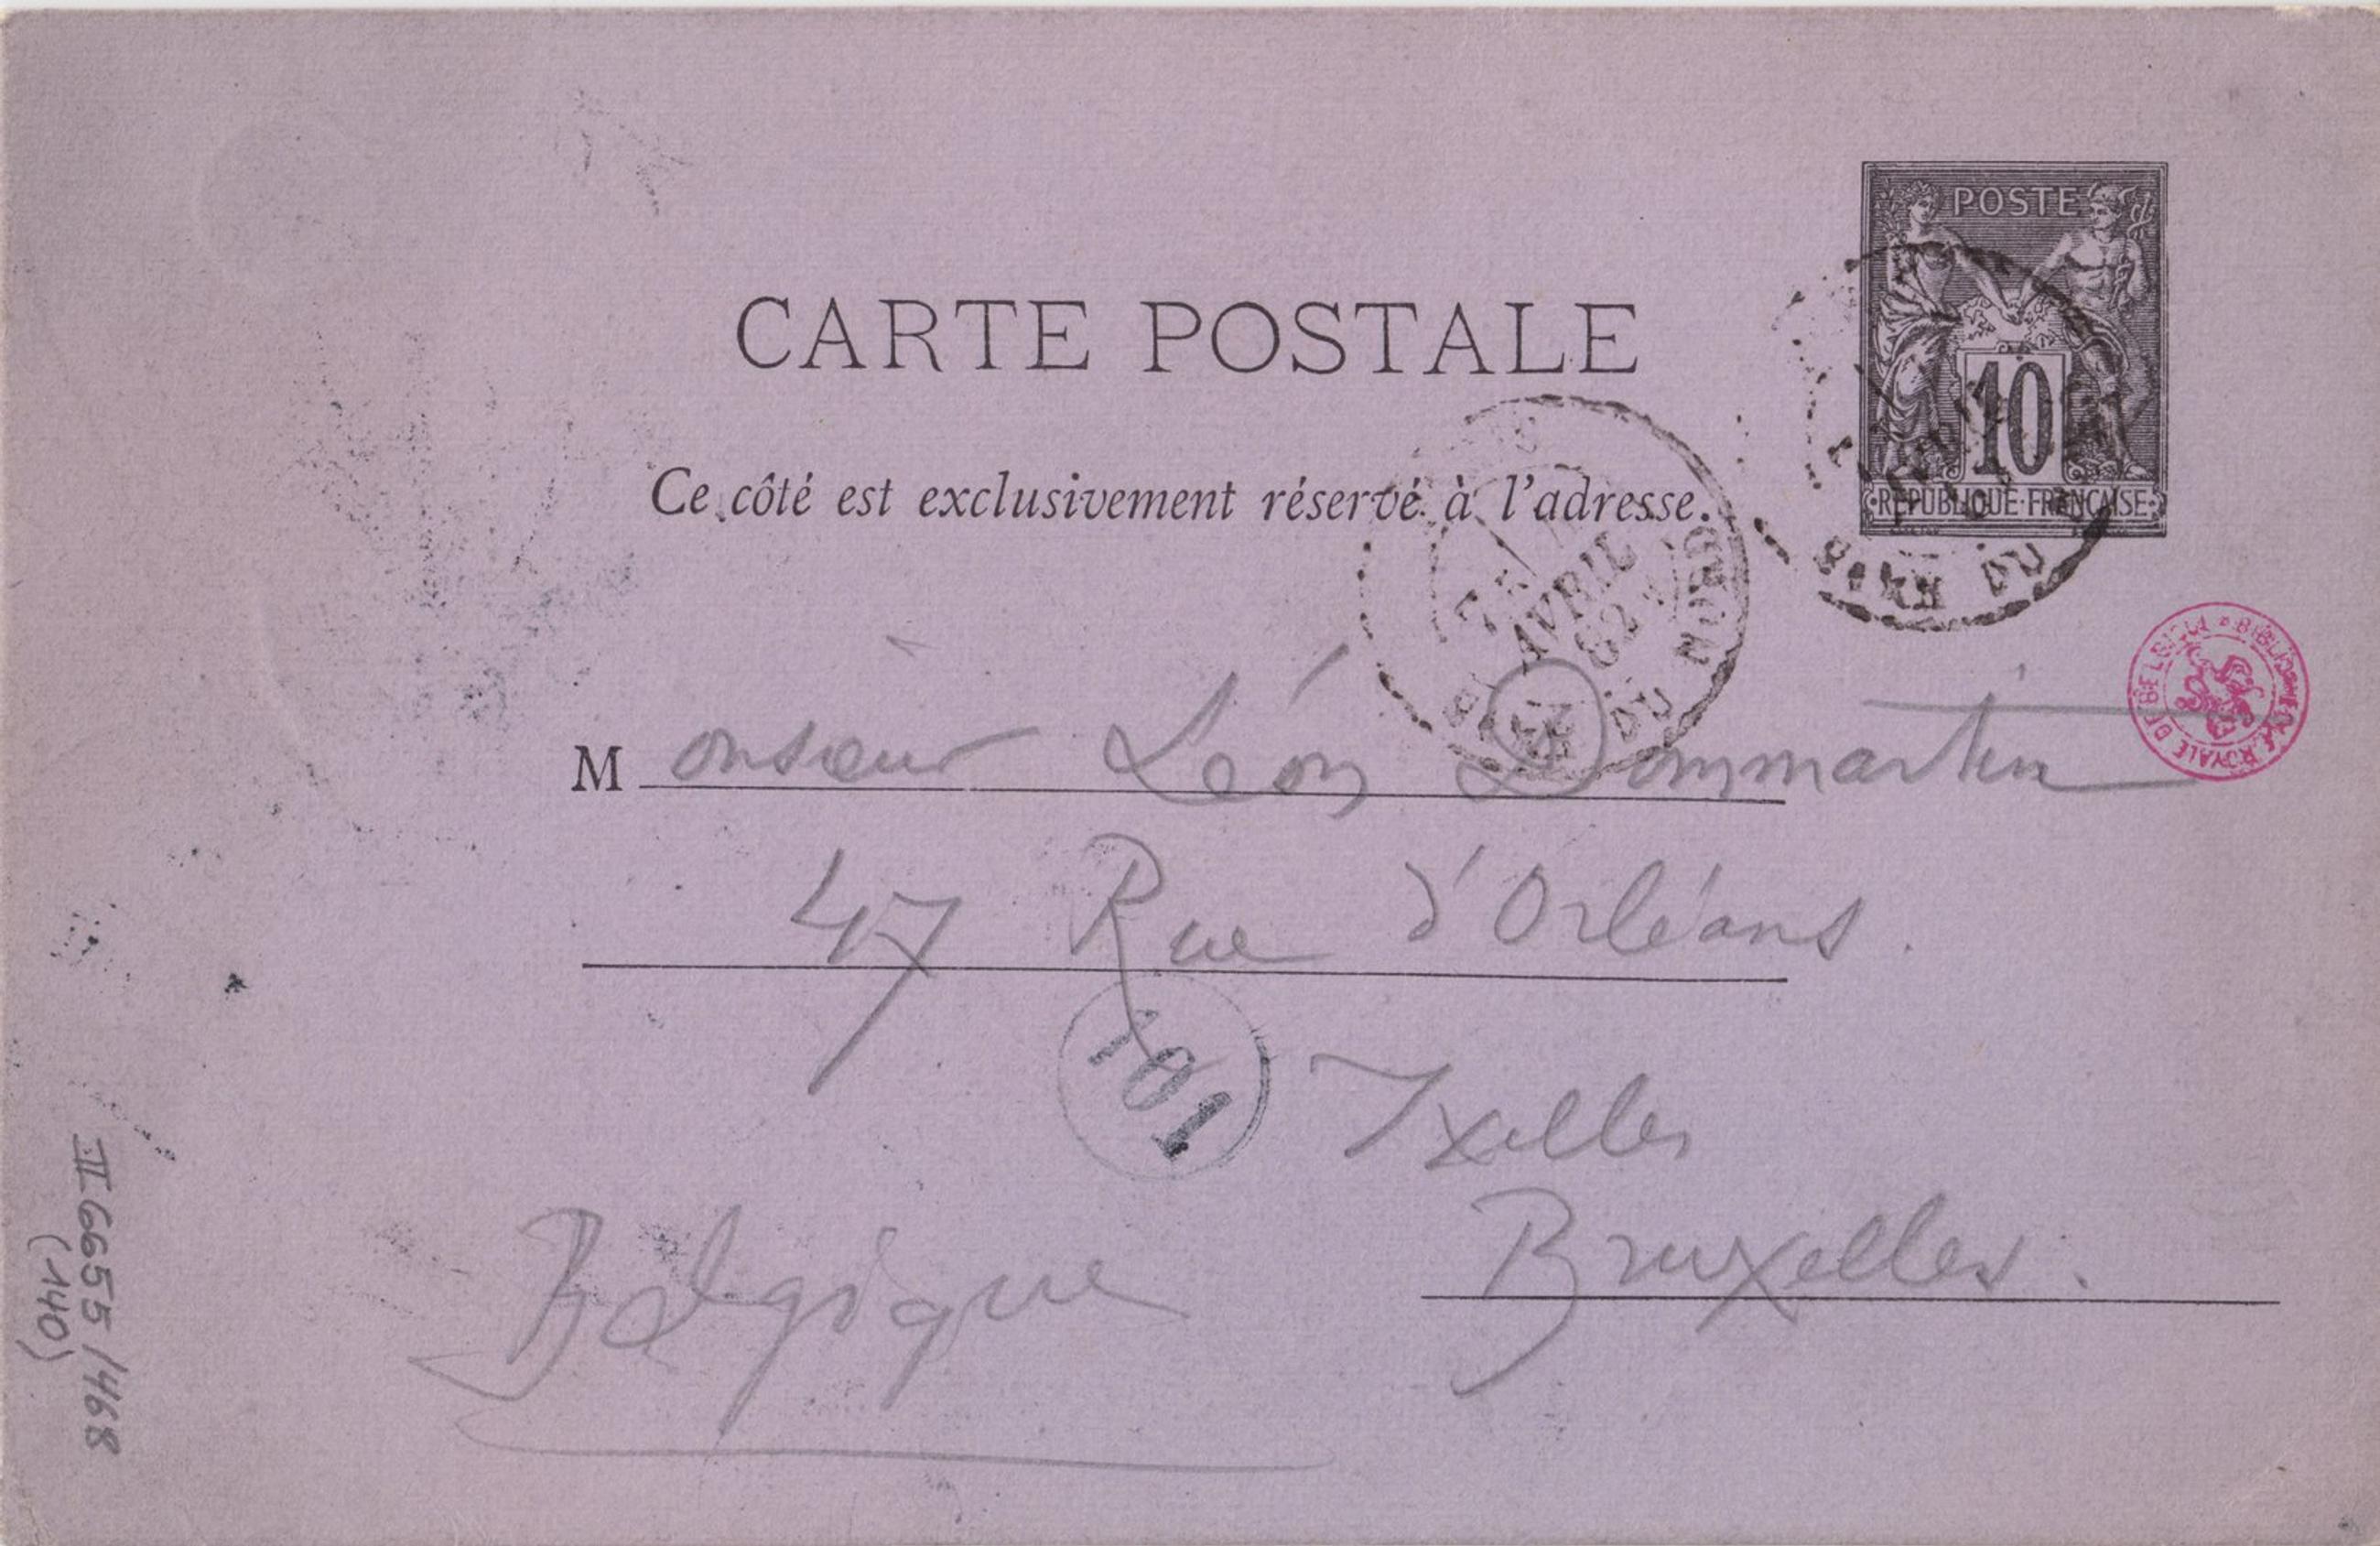 POSTE
10
REPUBLIQUE·FRANÇAISE
CARTE POSTALE
Ce côté est exclusivement réservé à l'adresse.
AVRIL
82
GARE DU NORD
GARE DU
BIBLIOTHEQUE ROYALE DE BELGIQUE
Monsieur Léon Dommartin
47 Rue d'Orléans.
101
Ixelles
Bruxelles.
Belgique
II 6655/468
(140)